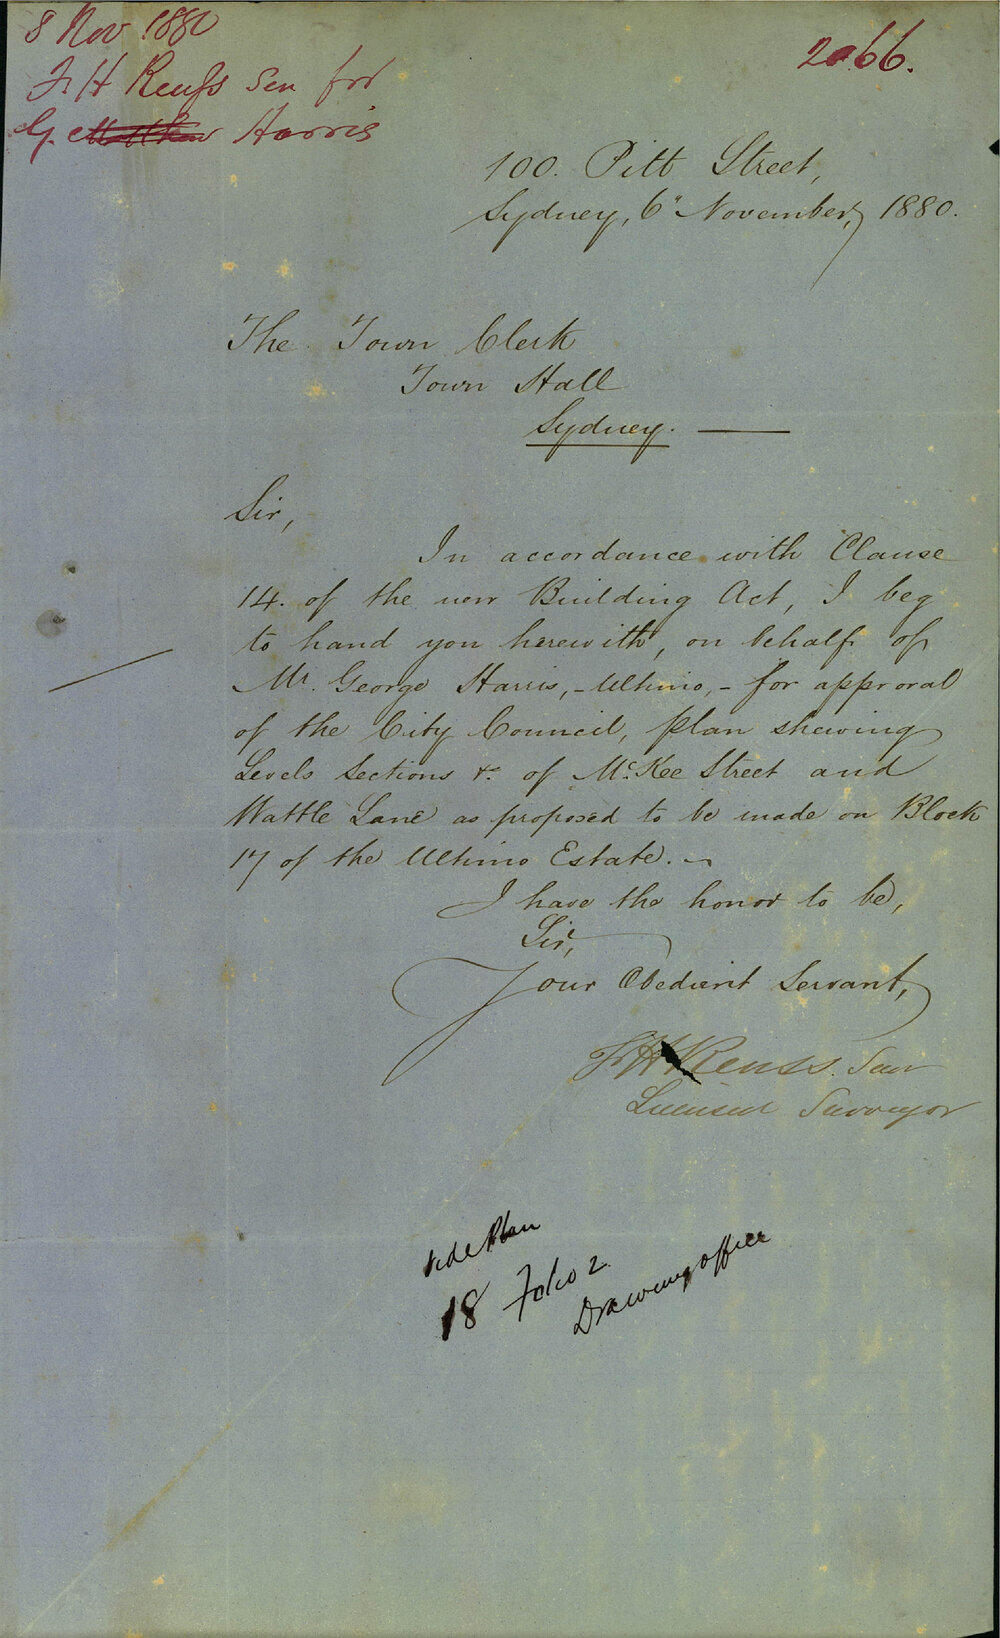 8 Nov 1880
F H Reuss Sen for
G. Matthew Harris
2066.
100. Pitt Street,
Sydney, 6" November, 1880.
The Town Clerk
Town Hall
Sydney. —
Sir,
In accordance with Clause
14. of the new Building Act, I beg
to hand you herewith, on behalf of
Mr. George Harris, - Ultimo, - for approval
of the City Council, plan shewing
Levels Sections &. of McKee Street and
Wattle Lane as proposed to be made on Block
17 of the Ultimo Estate. ~
I have the honor to be,
Sir,
Your Obedient Servant,
F H Reuss. Senr
Licensed Surveyor
vide Plan
18 Folio 2
Drawing office